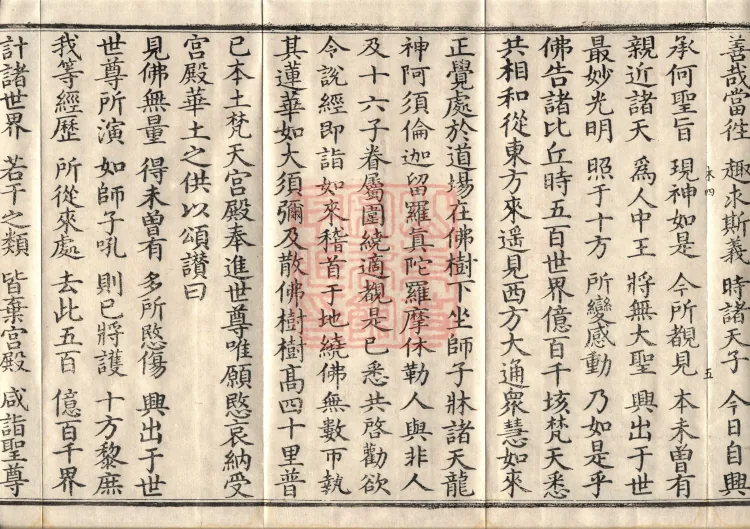 善哉當往 趣求斯義 時諸天子 今日自興
承何聖旨 現神如是 今所覩見 本未曾有
親近諸天 為人中王 將無大聖 興出于世
最妙光明 照于十方 所變感動 乃如是乎
佛告諸比丘時五百世界億百千垓梵天悉
共相和從東方來遥見西方大通衆慧如來
正覺處於道場在佛樹下坐師子牀諸天龍
神阿須倫迦留羅真陀羅摩休勒人與非人
及十六子眷屬圍繞適覩是已悉共啓勸欲
令說經即詣如來稽首于地繞佛無數帀執
其蓮華如大須彌及散佛樹樹高四十里普
已本土梵天宮殿奉進世尊唯願愍哀納受
宮殿華土之供以頌讚曰
見佛無量 得未曾有 多所愍傷 興出于世
世尊所演 如師子吼 則已將護 十方黎庶
我等經歷 所從來處 去此五百 億百千界
計諸世界 若干之類 皆棄宮殿 咸詣聖尊
五